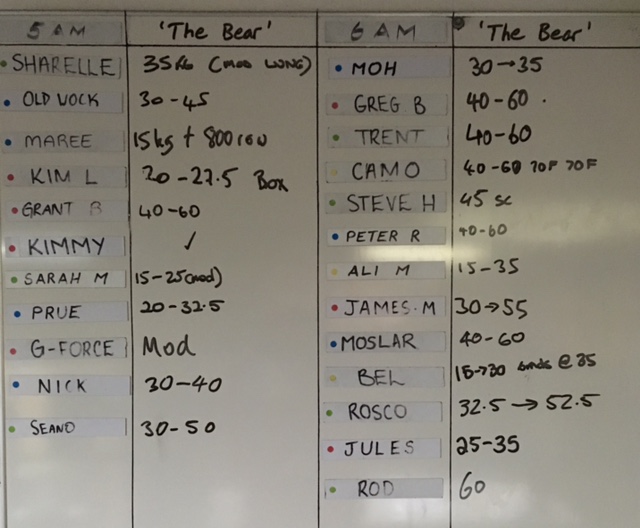 5 AM 'The Bear' 6 AM 'The Bear'
SHARELLE 35KG (MOD LUNG) MOH 30→35
OLD VOCK 30-45 GREG B 40-60
MAREE 15kg + 800 TRENT 40-60
KIM L 20-27.5 Box CAMO 40-60 70F 70F
GRANT B 40-60 STEVE H 45 SC
KIMMY ✓ PETER R 40-60
SARAH M 15-25(mod) ALI M 15-35
PRUE 20-32.5 JAMES.M 30→55
G-FORCE Mod MOSLAR 40-60
NICK 30-40 BEL 15→30 @ 35
SEANO 30-50 ROSCO 32.5→52.5
JULES 25-35
ROD 60